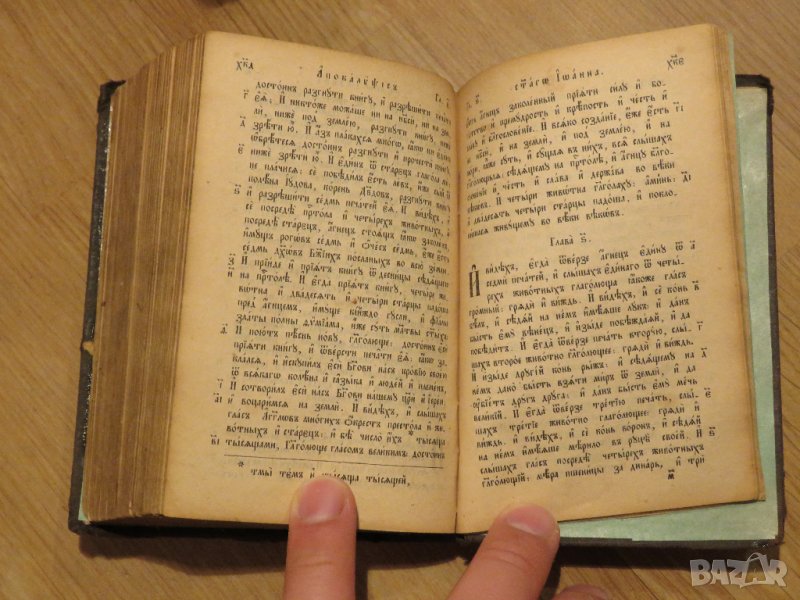 Апокалѵ́ψїсъ
Гл. є҃.
досто́инъ разгнꙋ́ти кни́гꙋ, и҆ разрѣши́ти
є҆ѧ̀. И҆ никто́же можа́ше ни на нб҃сѝ, ни на
ни́же под̾ земле́ю, разгнꙋ́ти кни́гꙋ, ни
зрѣ́ти ю҆̀. И҆ а҆́зъ пла́кахсѧ мно́гѡ, ꙗ҆́кѡ ни
ѡ҆брѣ́тесѧ досто́инъ разгнꙋ́ти и҆ прочестѝ кни́гꙋ,
нижѐ зрѣ́ти ю҆̀. И҆ є҆ди́нъ ѿ ста́рєцъ глаго́ла
не пла́чисѧ: сѐ побѣди́лъ є҆́сть ле́въ, и҆́же сы́й
колѣ́на і҆ꙋ́дова, ко́рень дв҃довъ, разгнꙋ́ти кни́гꙋ
и҆ разрѣши́ти се́дмь печа́тей є҆ѧ̀. И҆ ви́дѣхъ, и҆
сѐ посредѣ̀ прⷭ҇то́ла и҆ четы́рехъ живо́тныхъ, и҆
посредѣ̀ ста́рєцъ, а҆́гнецъ стоѧ́щь ꙗ҆́кѡ заколе́нъ,
и҆мꙋ́щь рогѡ́въ се́дмь и҆ ѻ҆че́съ се́дмь, є҆́же є҆́сть
се́дмь дх҃ѡ́въ бж҃їихъ по́сланыхъ во всю̀ зе́млю.
И҆ прїи́де и҆ прїѧ́тъ кни́гꙋ ѿ десни́цы сѣдѧ́щагѡ
на прⷭ҇то́лѣ. И҆ є҆гда̀ прїѧ́тъ кни́гꙋ, четы́ре жи-
вѡ́тна и҆ два́десѧть и҆ четы́ри ста́рцы падо́ша
пред̾ а҆́гнцемъ, и҆мꙋ́ще кі́йждо гꙋ́сли, и҆ фїа́лы
зла́ты пѡ́лны ѳѷмїа́ма, и҆̀же сꙋ́ть моли҃твы ст҃ы́хъ
И҆ пою́тъ пѣ́снь но́вꙋ, глаго́люще: досто́инъ є҆сѝ
прїѧ́ти кни́гꙋ, и҆ ѿве́рсти печа̑ти є҆ѧ̀: ꙗ҆́кѡ за-
кла́лсѧ, и҆ и҆скꙋпи́лъ є҆сѝ бг҃ови на́съ кро́вїю свое́ю
ѿ всѧ́кагѡ колѣ́на и҆ ꙗ҆зы́ка и҆ люде́й и҆ плєме́нъ,
И҆ сотвори́лъ є҆сѝ на́съ бг҃ови на́шемꙋ цр҃и̑ и҆ і҆ерє́и
и҆ воцари́мсѧ на землѝ. И҆ ви́дѣхъ, и҆ слы́шахъ
гла́съ а҆́гг҃лѡвъ мно́гихъ ѡ҆́крестъ престо́ла и҆ жи-
во́тныхъ и҆ ста́рєцъ, и҆ бѣ̀ число̀ и҆́хъ * ты́сѧща
ты́сѧщами, глаго́люще гла́сомъ вели́кимъ: досто́инъ
* тмы̀ те́мъ и҆ ты́сѧща ты́сѧщей,
ст҃а́гѡ І҆ѡа́нна.
заколе́нный прїѧ́ти си́лꙋ и҆ бо-
и҆ премꙋ́дрость и҆ крѣ́пость и҆ че́сть и҆
и҆ благослове́нїе. И҆ всѧ́ко созда́нїе, є҆́же є҆́сть
на нб҃сѝ, и҆ на землѝ, и҆ под̾ земле́ю, и҆ на
мо́ри, ꙗ҆̀же сꙋ́ть, и҆ сꙋ̑щаѧ въ ни́хъ, всѧ̑ слы́шахъ
глагѡ́лющыѧ: сѣдѧ́щемꙋ на прⷭ҇то́лѣ, и҆ а҆́гнцꙋ благо-
слове́нїе и҆ че́сть и҆ сла́ва и҆ держа́ва во вѣ́ки
И҆ четы́ри живѡ́тна глаго́лахꙋ: а҆ми́нь: и҆
два́десѧть четы́ри ста́рцы падо́ша, и҆ покло-
ни́шасѧ живꙋ́щемꙋ во вѣ́ки вѣкѡ́въ.
Глава̀ ѕ҃.
И҆ ви́дѣхъ, є҆гда̀ ѿве́рзе а҆́гнецъ є҆ди́нꙋ ѿ
седмѝ печа́тей, и҆ слы́шахъ є҆ди́наго ѿ четы́-
рехъ живо́тныхъ глаго́люща ꙗ҆́коже гла́съ
гро́мный: грѧдѝ и҆ ви́ждь. И҆ ви́дѣхъ, и҆ сѐ ко́нь
бѣ́лъ, и҆ сѣдѧ́й на не́мъ и҆мѣ́ѧше лꙋ́къ: и҆ да́нъ
бы́сть є҆мꙋ̀ вѣне́цъ, и҆ и҆зы́де побѣжда́ѧй, и҆ да
побѣди́тъ. И҆ є҆гда̀ ѿве́рзе печа́ть вторꙋ́ю, слы́-
шахъ второ́е живо́тно глаго́лющее: грѧдѝ и҆ ви́ждь.
И҆ и҆зы́де дрꙋгі́й ко́нь ры́жь, и҆ сѣдѧ́щемꙋ на
не́мъ дано̀ бы́сть взѧ́ти ми́ръ ѿ землѝ, и҆ да
ᲂу҆бїе́тъ дрꙋ́гъ дрꙋ́га: и҆ да́нъ бы́сть є҆мꙋ̀ ме́чь
вели́кїй. И҆ є҆гда̀ ѿве́рзе тре́тїю печа́ть, слы́-
шахъ тре́тїе живо́тно глаго́лющее: грѧдѝ и҆
ви́ждь. И҆ ви́дѣхъ, и҆ сѐ ко́нь воро́нъ, и҆ сѣдѧ́й
на не́мъ и҆мѣ́ѧше мѣ́рило въ рꙋцѣ̀ свое́й. И҆
слы́шахъ гла́съ посредѣ̀ четы́рехъ живо́тныхъ
глаго́лющїй: мѣ́ра пшени́цы за дина́рь, и҆ трѝ
BAZAR